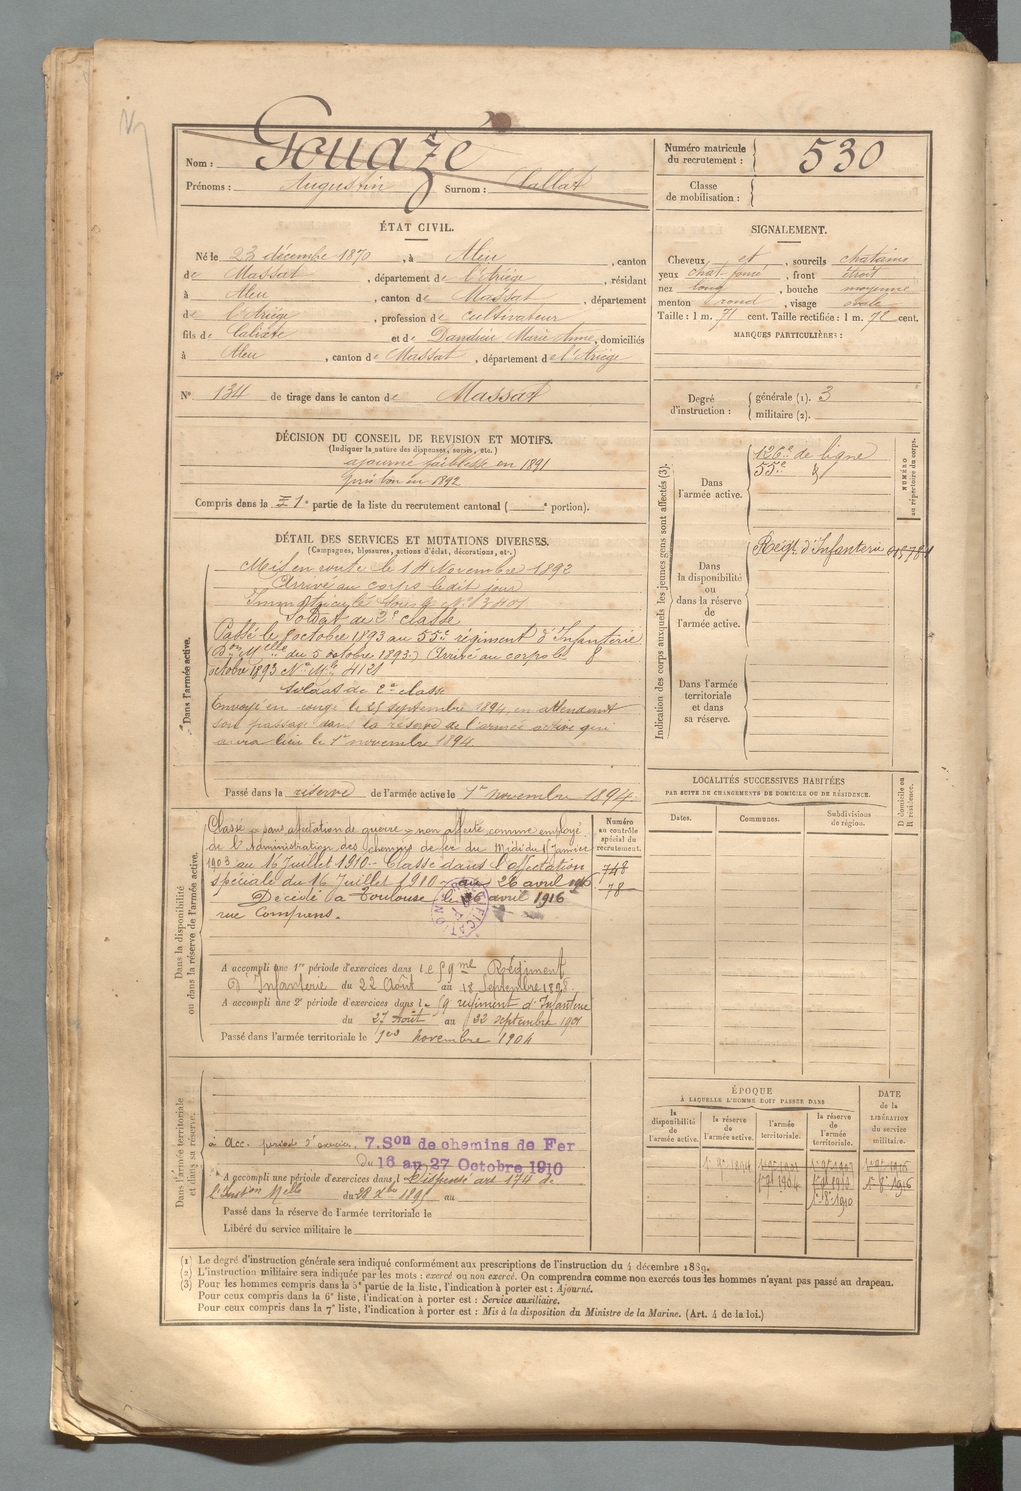 Nom : Gouazé
Prénoms : Augustin Surnom : Callat
Numéro matricule du recrutement : 530
Classe de mobilisation :
ÉTAT CIVIL.
Né le 23 décembre 1870, à Aleu, canton
de Massat, département de l'Ariège, résidant
à Aleu, canton de Massat, département
de l'Ariège, profession de cultivateur
fils de Calixte et de Dandieu Marie Anne, domiciliés
à Aleu, canton de Massat, département de l'Ariège
N° 134 de tirage dans le canton de Massat
SIGNALEMENT.
Cheveux et, sourcils chatains
yeux chat foncé, front étroit
nez long, bouche moyenne
menton rond, visage ovale
Taille : 1 m. 71 cent. Taille rectifiée : 1 m. 72 cent.
MARQUES PARTICULIÈRES :
Degré d'instruction : générale (1). 3
militaire (2).
DÉCISION DU CONSEIL DE REVISION ET MOTIFS.
(Indiquer la nature des dispenses, sursis, etc.)
ajourné faiblesse en 1891
bon en 1892
Compris dans la 1e partie de la liste du recrutement cantonal ( e portion).
DÉTAIL DES SERVICES ET MUTATIONS DIVERSES.
(Campagnes, blessures, actions d'éclat, décorations, etc.)
Dans l'armée active.
Mis en route le 14 Novembre 1892
Arrivé au corps ledit jour
Immatriculé sous le N° 3401
Soldat de 2e classe
Passé le 8 octobre 1893 au 55e régiment d'Infanterie
(Don Melle du 5 octobre 1893) Arrivé au corps le 8
octobre 1893 N° Mle 4121
Soldat de 2e classe
Envoyé en congé le 25 septembre 1894, en attendant
son passage dans la réserve de l'armée active qui
aura lieu le 1er novembre 1894
Passé dans la réserve de l'armée active le 1er novembre 1894
Indication des corps auxquels les jeunes gens sont affectés (3).
NUMÉRO au répertoire du corps.
Dans l'armée active.
126e de ligne
55e
Dans la disponibilité ou dans la réserve de l'armée active.
Régt d'Infanterie
Dans l'armée territoriale et dans sa réserve.
Dans la disponibilité ou dans la réserve de l'armée active.
Numéro au contrôle spécial du recrutement.
748
78
Classé "sans affectation de guerre" non affecté comme employé
de l'Administration des chemins de fer du Midi du 1 Janvier
1903 au 16 Juillet 1910 - Classé dans l'affectation
spéciale du 16 Juillet 1910 au 26 avril 1916
Décédé à Toulouse le 26 avril 1916
rue Compans.
A accompli une 1re période d'exercices dans le 59me Régiment
d'Infanterie du 22 Août au 18 Septembre 1898
A accompli une 2e période d'exercices dans l 59 régiment d'Infanterie
du 27 Août au septembre 1901
Passé dans l'armée territoriale le 1er novembre 1904
LOCALITÉS SUCCESSIVES HABITÉES
PAR SUITE DE CHANGEMENTS DE DOMICILE OU DE RÉSIDENCE.
Dates. Communes. Subdivisions de région. D domicile ou R résidence.
Dans l'armée territoriale et dans sa réserve.
à Acc. période d'exercices. 7.Son de chemins de Fer
Du 16 au 27 Octobre 1910
A accompli une période d'exercices dans l Dispensé art 174 de
l'Inston Melle du 28 Xbre 1895 au
Passé dans la réserve de l'armée territoriale le
Libéré du service militaire le
ÉPOQUE
À LAQUELLE L'HOMME DOIT PASSER DANS
la disponibilité de l'armée active. la réserve de l'armée active. l'armée territoriale. la réserve de l'armée territoriale.
DATE de la LIBÉRATION du service militaire.
(1) Le degré d'instruction générale sera indiqué conformément aux prescriptions de l'instruction du 4 décembre 1889.
(2) L'instruction militaire sera indiquée par les mots : exercé ou non exercé. On comprendra comme non exercés tous les hommes n'ayant pas passé au drapeau.
(3) Pour les hommes compris dans la 5e partie de la liste, l'indication à porter est : Ajourné.
Pour ceux compris dans la 6e liste, l'indication à porter est : Service auxiliaire.
Pour ceux compris dans la 7e liste, l'indication à porter est : Mis à la disposition du Ministre de la Marine. (Art. 4 de la loi.)